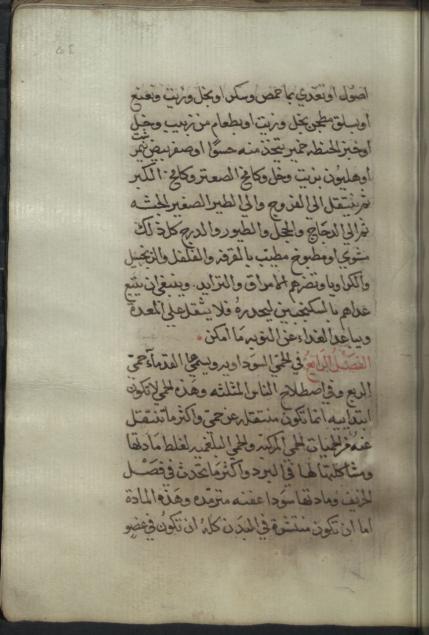 اصول او تغدى بما حمص وسكر او بخل وزيت ونعنع
او بسلق مطجن بخل وزيت او بطعام من زبيب وخل
او خبز الحنطة خمير يتخذ منه حسوًا او صفر بيض
او هليون بزيت وخل وكامخ الصعتر وكامخ الكبر
ثم ينتقل الى الفروج والى الطير الصغير الجثه
ثم الى الدجاج والحجل والطيور والدرج كل ذلك
مشوي او مطبوخ مطيب بالقرفه والفلفل والزنجبيل
والكراويا وتضرهم الامراق والثرايد. وينبغي ان يتبع
غداهم بالسكنجبين ليحدره فلا يثقل على المعدة
ويباعد الغذاء عن النوبه ما امكن
الفصل الرابع في الحمى السوداويه ويسميها القدماء حمى
الربع وفي اصطلاح الناس المثلثه وهذه الحمى لا تكون
ابتدايه انما تكون منتقله عن حمى واكثر ما تنتقل
عنه من الحميات الحمى المركبه والحمى البلغميه لغلظ مادتها
ومشاكلتها لها في البرد واكثر ما تحدث في فصل
الخريف ومادتها سودا عفنه مترمده وهذه المادة
اما ان تكون منتشرة في البدن كله او تكون في عضو